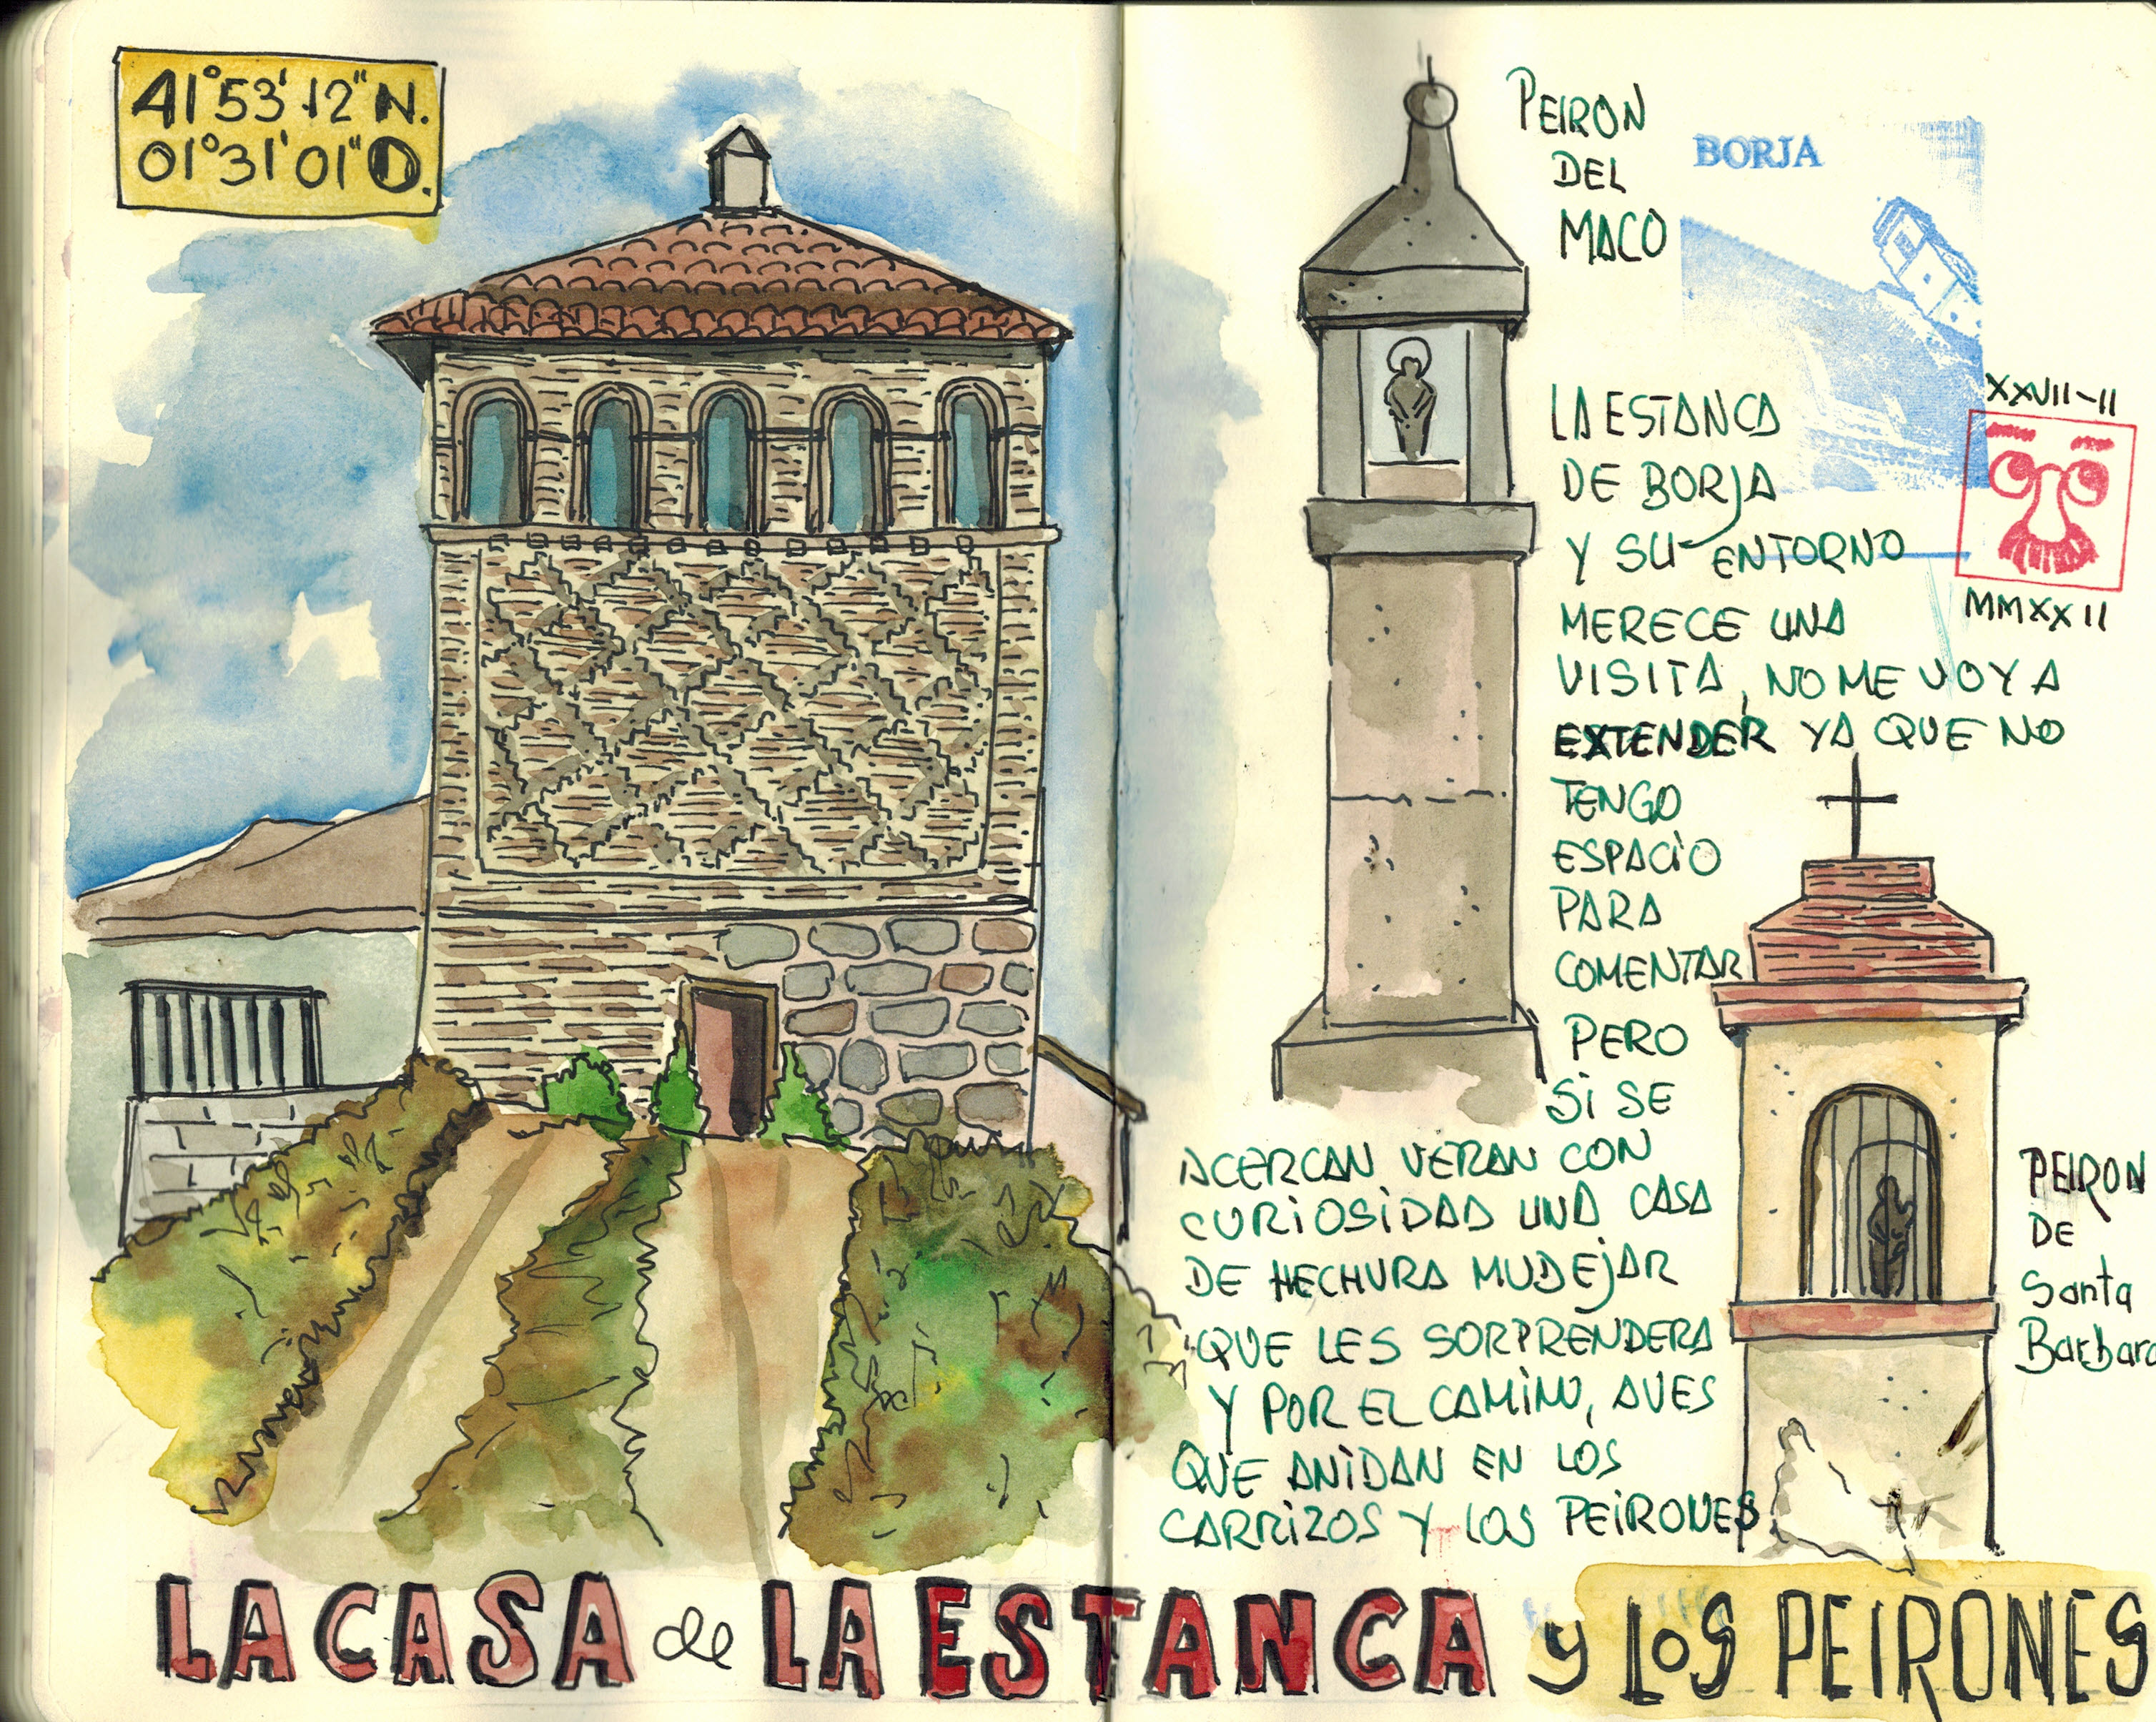 41°53'12"N.
01°31'01"O.
PEIRON
DEL
MACO
BORJA
XXVII-II
MMXXII
LA ESTANCA
DE BORJA
Y SU ENTORNO
MERECE UNA
VISITA, NO ME VOY A
EXTENDER YA QUE NO
TENGO
ESPACIO
PARA
COMENTAR
PERO
SI SE
ACERCAN VERAN CON
CURIOSIDAD UNA CASA
DE HECHURA MUDEJAR
QUE LES SORPRENDERA
Y POR EL CAMINO, AVES
QUE ANIDAN EN LOS
CARRIZOS Y LOS PEIRONES
PEIRON
DE
Santa
Barbara
LA CASA de LA ESTANCA y LOS PEIRONES